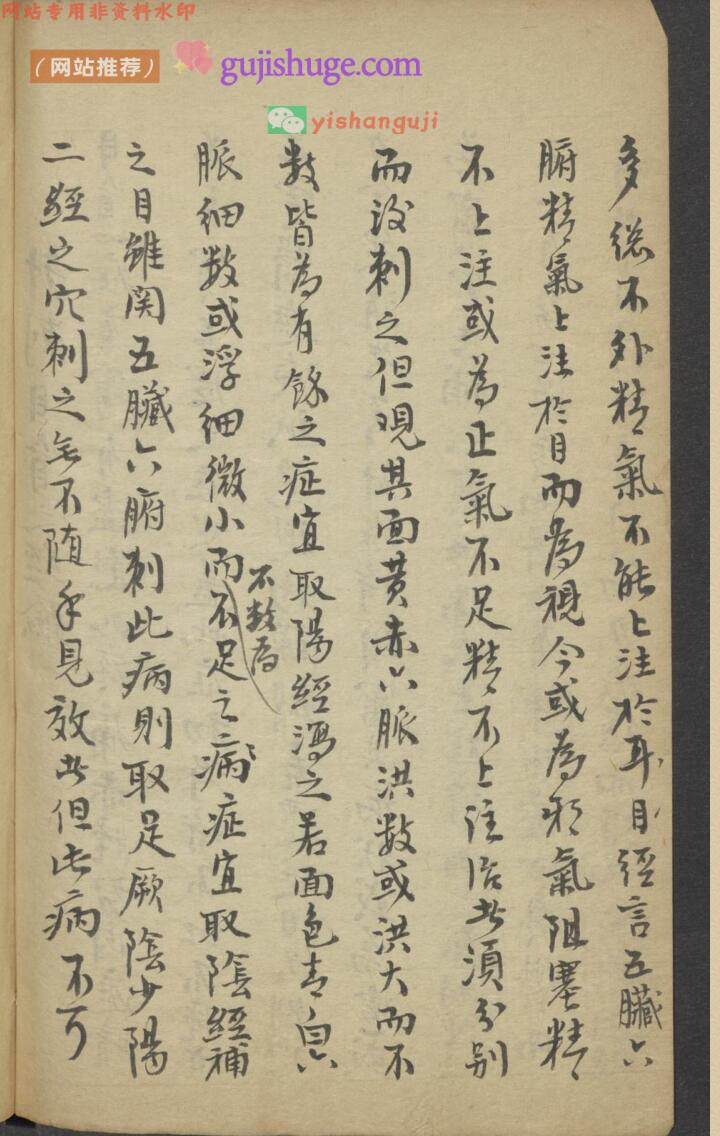 网站专用非资料水印
(网站推荐) gujishuge.com
yishanguji
多總不外精氣不能上注於耳目經言五臟六
腑精氣上注於目而為視今或為邪氣阻塞精
不上注或為正氣不足精不上注治者須分別
而後刺之但观其面黄赤六脈洪数或洪大而不
数皆為有餘之症宜取陽經瀉之若面色青白六
脈细数或浮细微小而不足之病症宜取陰經補
不数為
之目雖関五臟六腑刺此病則取足厥陰少陽
二經之穴刺之無不随手見效者但此病不可